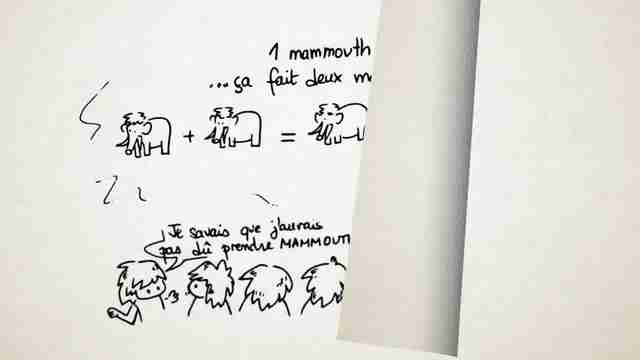 1 mammouth
...ça fait deux m
+ =
Je savais que j'aurais
pas dû prendre MAMMOUTH